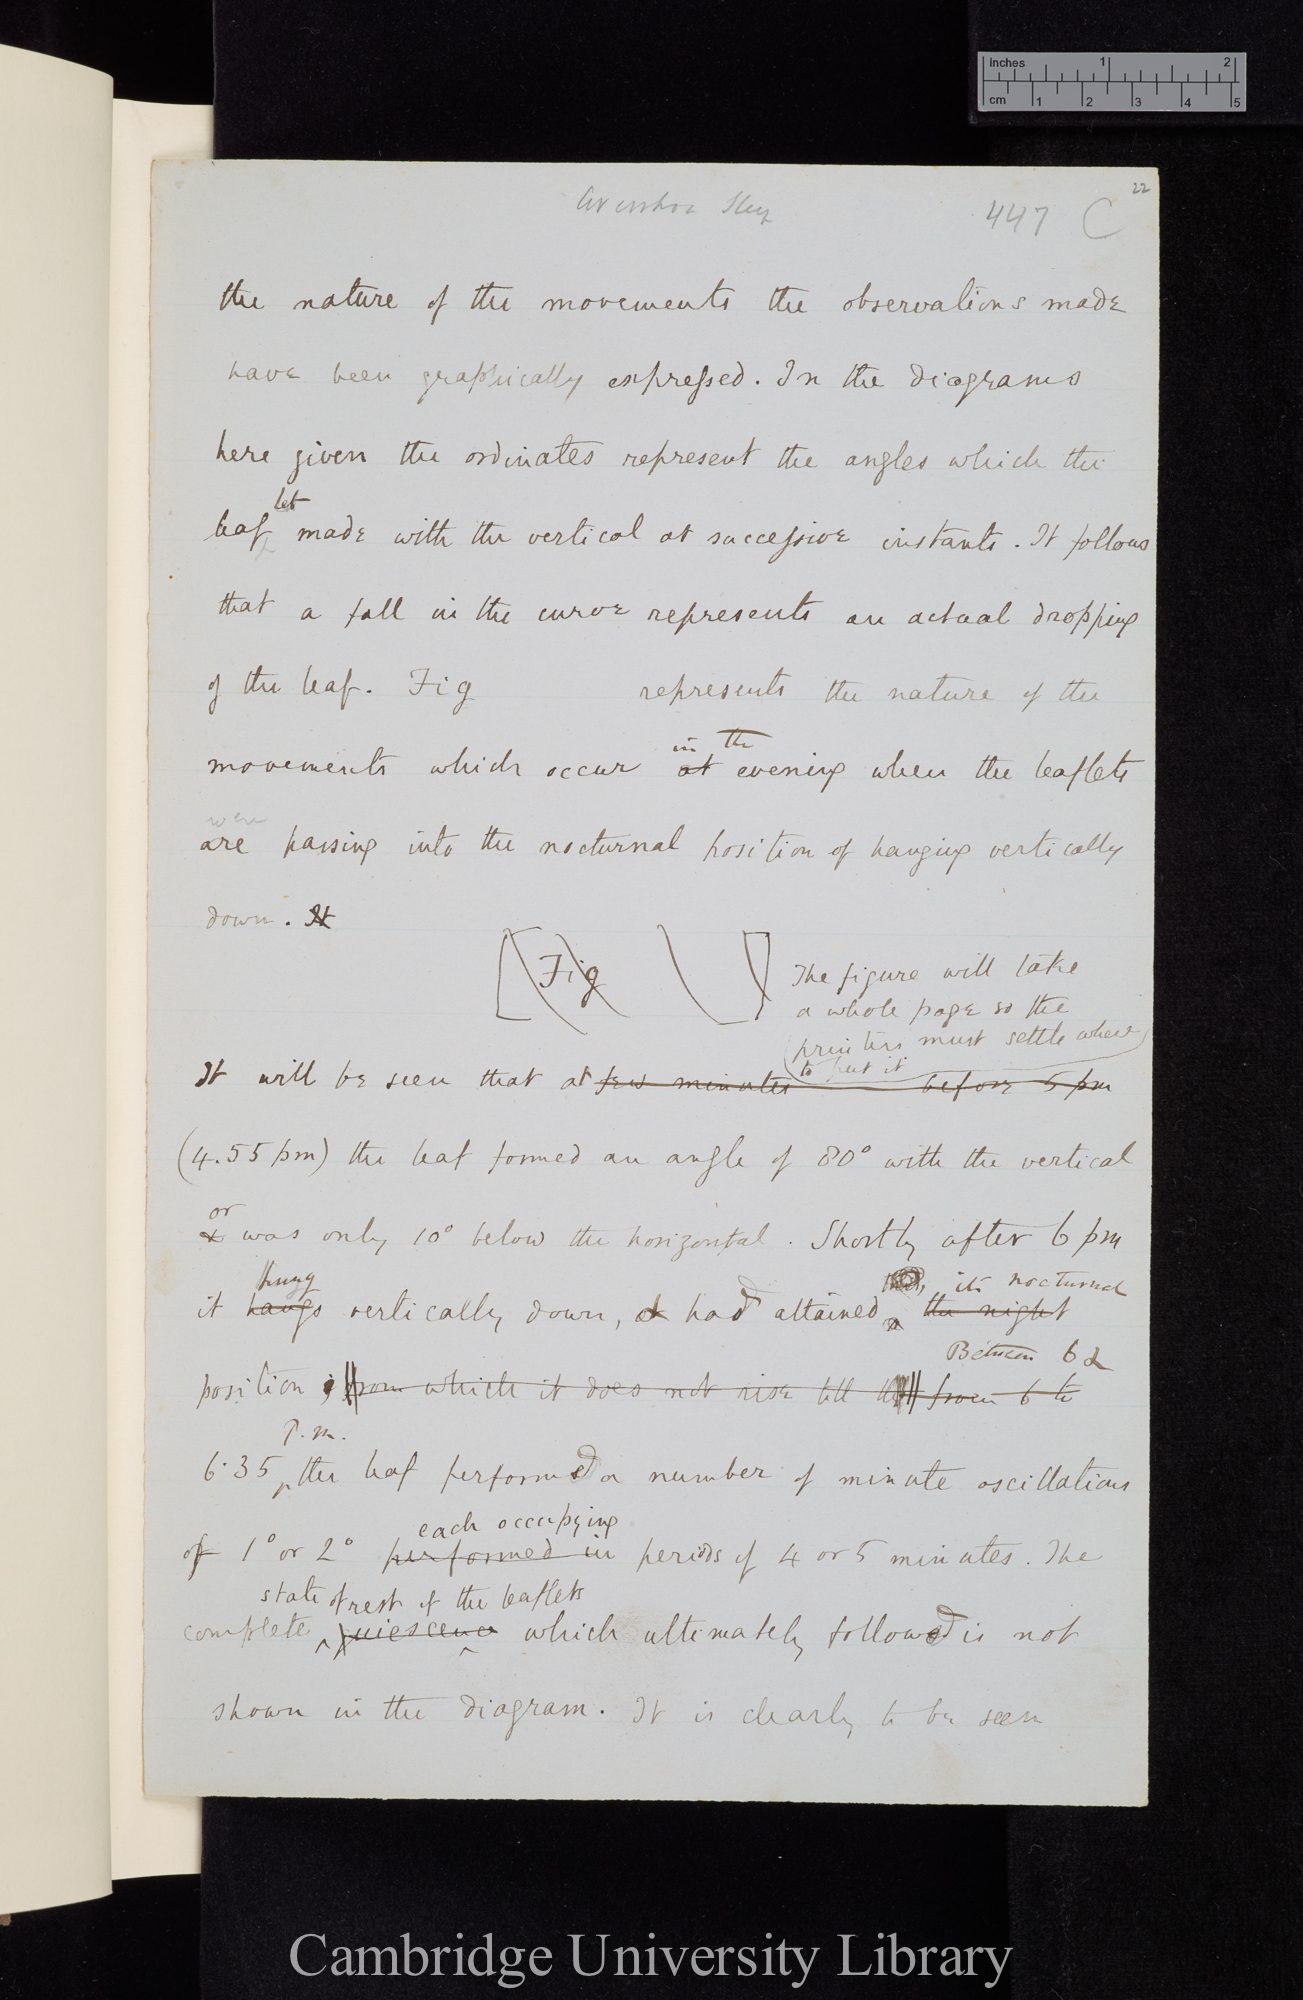 Inches 1 2
cm 1 2 3 4 5
22
Averrhoa Sleep
447 C
the nature of the movements the observations made
have been graphically expressed. In the diagrams
here given the ordinates represent the angles which the
let
leaf made with the vertical at successive instants. It follows
that a fall in the curve represents an actual dropping
of the leaf. Fig represents the nature of the
in the
movements which occur at evening when the leaflets
were
are passing into the nocturnal position of hanging vertically
down. It
[Fig ]
The figure will take
a whole page so the
printers must settle where
to put it
It will be seen that at few minutes before 5 pm
(4.55 pm) the leaf formed an angle of 80° with the vertical
or
& was only 10° below the horizontal. Shortly after 6 pm
hung
its nocturnal
it hangs vertically down, & had attained the night
Between 6 &
position; from which it does not rise till from 6 to
P.m.
6.35 the leaf performed a number of minute oscillations
each occupying
of 1° or 2° performed in periods of 4 or 5 minutes. The
state of rest of the leaflets
complete quiescence which ultimately followed is not
shown in the diagram. It is clearly to be seen
Cambridge University Library